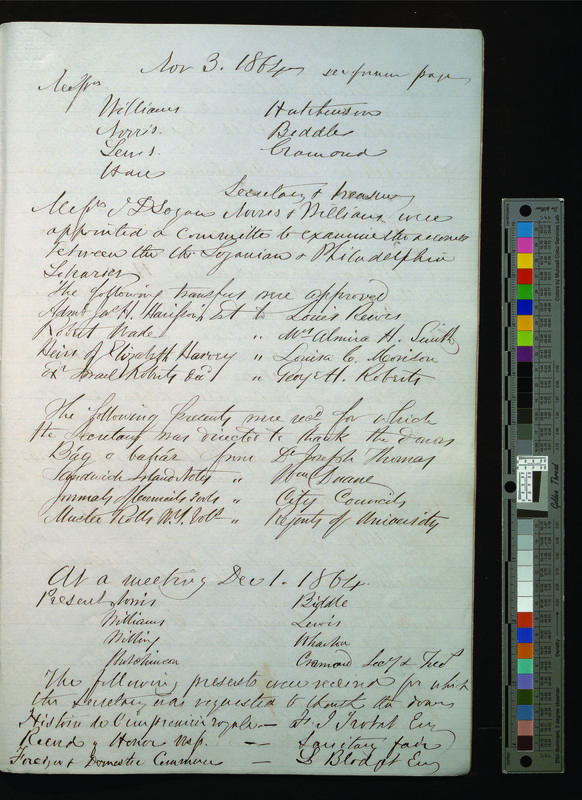 Nov 3. 1864 see former page
Messrs
Williams Hutchinson
Norris. Biddle
Lewis. Cramond
Hare
Secretary & Treasurer
Messrs J D Logan Norris & Williams were
appointed a Committee to examine the accounts
between the the Loganian & Philadelphia
Libraries
The following transfers were approved
Admr Jac H. Est to Louis
Robert Wade " Mrs Almira H. Smith
Heirs of Elizabeth Harvey " Louisa C. Morison
Exr Israel Roberts " Geo H. Roberts
The following presents were recd for which
the Secretary was directed to thank the donors
from Dr Joseph Thomas
Sandwich Island Notes " Wm Duane
Journals of Councils vols " City Councils
Muster Rolls N.Y. Vols " Regents of University
At a meeting Dec 1. 1864.
Present Norris Biddle
Williams Lewis
Willing Wharton
Hutchinson Cramond Secy & Treas
The following presents were received for which
the Secretary was requested to thank the donors
Histoire de L'imprimerie royale — Esq
Record of Honor — Sanitary fair
Foreign & Domestic Commerce — L Blodget Esq